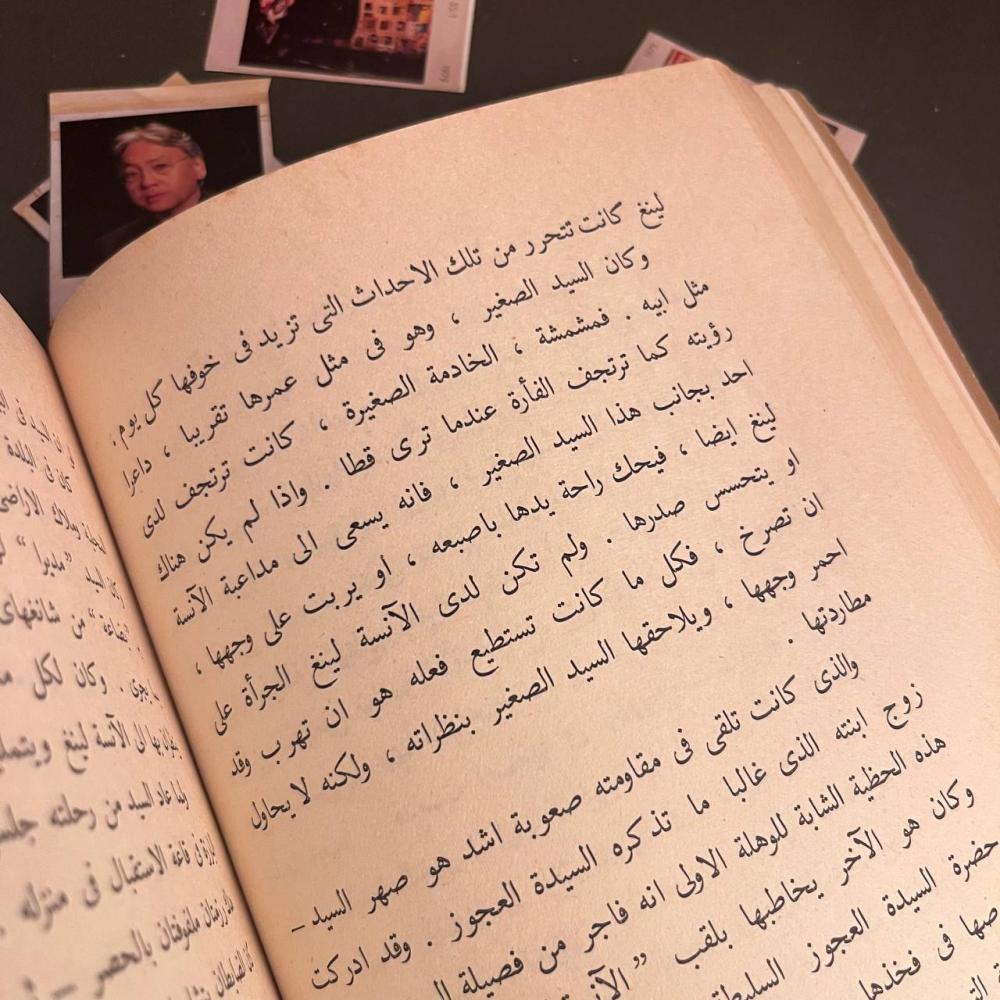 لينغ كانت تتحرر من تلك الاحداث التى تزيد فى خوفها كل يوم .
وكان السيد الصغير ، وهو فى مثل عمرها تقريبا ، داعرا
مثل ابيه . فمشمشة ، الخادمة الصغيرة ، كانت ترتجف لدى
رؤيته كما ترتجف الفأرة عندما ترى قطا . واذا لم يكن هناك
احد بجانب هذا السيد الصغير ، فانه يسعى الى مداعبة الآنسة
لينغ ايضا ، فيحك راحة يدها باصبعه ، أو يربت على وجهها ،
او يتحسس صدرها . ولم تكن لدى الآنسة لينغ الجرأة على
ان تصرخ ، فكل ما كانت تستطيع فعله هو ان تهرب وقد
احمر وجهها ، ويلاحقها السيد الصغير بنظراته ، ولكنه لا يحاول
مطاردتها .
والذى كانت تلقى فى مقاومته صعوبة اشد هو صهر السيد ــ
زوج ابنته الذى غالبا ما تذكره السيدة العجوز . وقد ادركت
هذه الحظية الشابة للوهلة الاولى انه فاجر من فصيلة
وكان هو الآخر يخاطبها بلقب
حضرة السيدة العجوز
فى فخذها
كان فى البلدة
وملاك الاراضى
وكان السيد "مديرا"
من
يجرى . وكان لكل
الى الآنسة لينغ
ولما عاد السيد من رحلته
فى قاعة الاستقبال فى منزله
ملفوفتان بالحصر